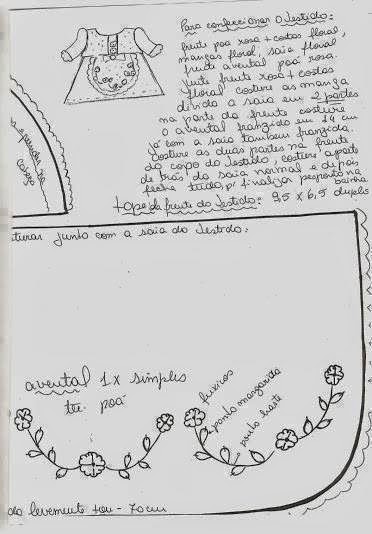 Para confeccionar o Vestido:
frente poa rosa + costas floral,
mangas floral, saia floral
frente avental poá rosa.
junte frente rosa + costas
floral costure as manga
divida a saia em 2 partes
na parte da frente costure
o avental franzido em 14 cm
já com a saia tambem franzida.
costure as duas partes na frente
do corpo do Vestido, costure a parte
de trás da saia normal e depois
fecha tudo, p/ finalizar pesponto na
bainha
tope da frente do Vestido: 9,5 x 6,5 duplo
cabeça
costurar junto com a saia do Vestido:
avental 1 x simples
tec. poá
fuxicos
ponto margarita
ponto haste
levemente 70 cm